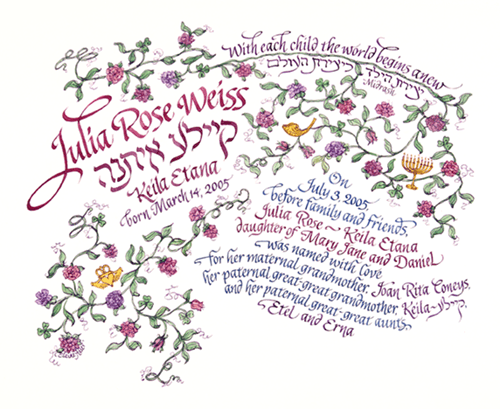 With each child the world begins anew
יצירת הילד כיצירת העולם
Midrash
Julia Rose Weiss
קיילע איתנה
Keila Etana
born March 14, 2005
On
July 3, 2005
before family and friends,
Julia Rose ~ Keila Etana
daughter of Mary Jane and Daniel
was named with love
for her maternal grandmother, Joan Rita Coneys,
her paternal great-great grandmother, Keila-קיילע,
and her paternal great-great aunts,
Etel and Erna